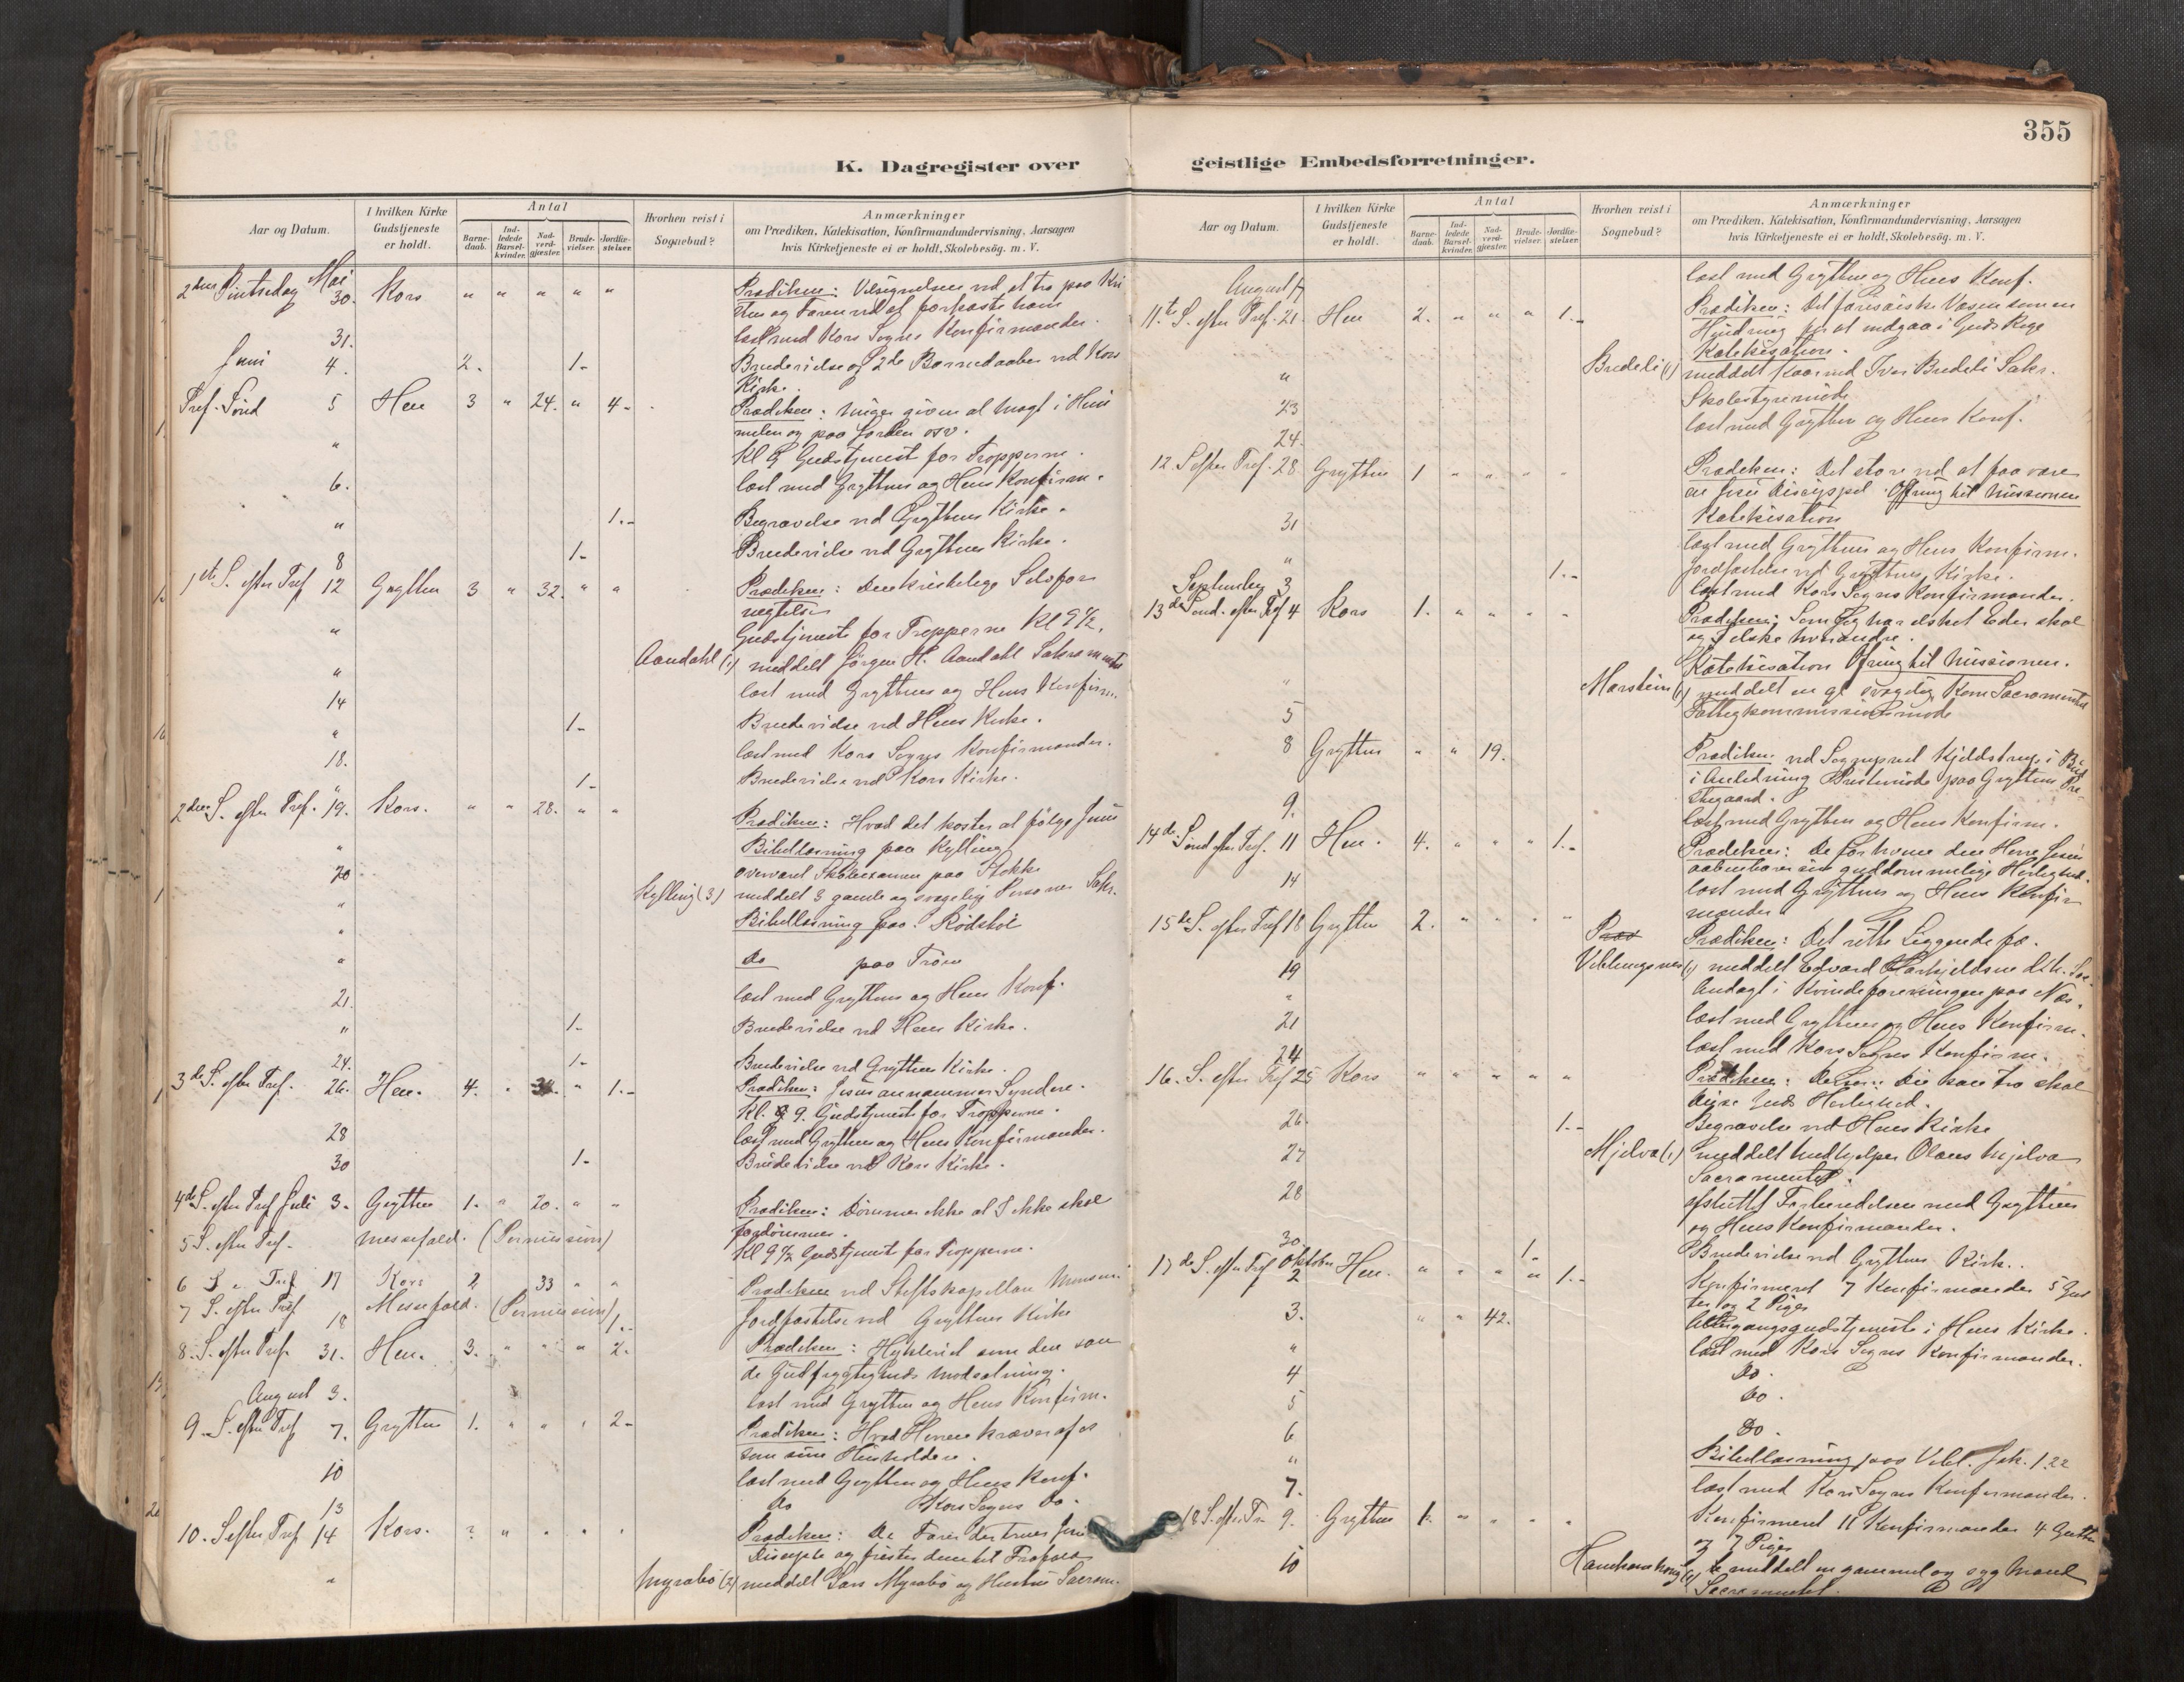 355
K. Dagregister over geistlige Embedsforretninger.
Aar og Datum.
I hvilken Kirke Gudstjeneste er holdt.
Antal
Barne-daab.
Ind-ledede Barsel-kvinder.
Nad-verd-gjæster.
Brude-vielser.
Jordfæ-stelser.
Hvorhen reist i Sognebud?
Anmærkninger
om Prædiken, Katekisation, Konfirmandundervisning, Aarsagen
hvis Kirketjeneste ei er holdt, Skolebesög. m. V.
2den Pintsedag Mai 30. Kors " " " " " Prædiken: Velsignelsen ved at tro paa Kri
sten og Faren ved at forkaste ham
31. læst med Kors Sogns Konfirmander.
Juni 4. 2. 1- Brudevielse og 2de Barnedaaber ved Kors
Kirke.
Tref. Sönd 5 Hen 3 " 24. " 4- Prædiken: Mig er given al Magt i Him
melen og paa Jorden osv.
" Kl 9 Gudstjenest for Tropperne.
6. læst med Gryttens og Hens Konfirm.
" 1.- Begravelse ved Gryttens Kirke.
8 1- Brudevielse ved Gryttens Kirke.
1ste S. efter Tref 12 Grytten 3 " 32. " " Prædiken: Den kristelige Selvfor
nægtelse
" Gudstjeneste for Tropperne Kl 9 1/2.
" Aandahl (1) meddelt Jörgen H. Aandahl Sakramentet
14 læst med Gryttens og Hens Konfirm.
" 1- Brudevielse ved Hens Kirke.
18. læst med Kors Sogns Konfirmander.
" 1- Brudevielse ved Kors Kirke.
2den S. efter Tref. 19. Kors. " " 28. " " Prædiken: Hvad det koster at fölge Jesus
" Bibellæsning paa Kylling
20 overværet Skoleexamen paa Stokke
" Kylling (3) meddelt 3 gamle og svagelige Personer Sakr.
" Bibellæsning paa Rödstöl
" do paa Tröen
21. læst med Gryttens og Hens Konf.
" 1- Brudevielse ved Hens Kirke.
24. 1- Brudevielse ved Gryttens Kirke.
3de S. efter Tref. 26. Hen. 4. " " 1.- Prædiken: Jesus annammer Syndere.
Kl. 9. Gudstjenest for Tropperne.
28 læst med Gryttens og Hens Konfirmander.
30 1- Brudevielse ved Kors Kirke.
4de S. efter Tref Juli 3. Grytten 1. " 20. " " Prædiken: Dömmer ikke at I ikke skal
fordömmes.
5 S. efter Tref. Messefald. (Permission) Kl 9 1/2 Gudstjenest for Tropperne.
6 S e. Tref 17 Kors 2 33 " " Prædiken ved Stiftskapellan
7 S. efter Tref Messefald. (Permission)
18 1.- Jordfæstelse ved Gryttens Kirke
8. S. efter Tref. 31. Hen. 3. " " " 2. Prædiken: Hykleriet som den san
de Gudfrygtigheds Modsætning.
August 3. læst med Gryttens og Hens Konfirm.
9. S. efter Tref 7. Grytten 1. " " " 2- Prædiken: Hvad Herren kræver af os
som sine Husholdere.
10 læst med Gryttens og Hens Konf.
13 do Kors Sogns do.
10. S efter Tref 14 Kors. 2 " " " " Prædiken: De Farer der truer Jesu
Disciple og frister dem til Frafald
" Myrabö (2) meddelt Lars Myrabö og Hustru Sacram.
Aar og Datum.
I hvilken Kirke Gudstjeneste er holdt.
Antal
Barne-daab.
Ind-ledede Barsel-kvinder.
Nad-verd-gjester.
Brude-vielser.
Jordfæ-stelser.
Hvorhen reist i Sognebud?
Anmærkninger
om Prædiken, Katekisation, Konfirmandundervisning, Aarsagen
hvis Kirketjeneste ei er holdt, Skolebesög. m. V.
August 17 læst med Gryttens og Hens Konf.
11.te S. efter Tref. 21. Hen 2. " " " 1.- Prædiken: Det farisæiske Væsen som en
Hindring for at indgaa i Guds Rige
Katekisation.
" Bredeli (1) meddelt Iver Bredeli Sakr.
23 Skolestyremöde
24. læst med Gryttens og Hens Konf.
12. S efter Tref. 28. Grytten 1 " " " " Prædiken: Det store ved at faa være
en Jesu Discippel. Ofring til Missionen
Katekisation
31 læst med Gryttens og Hens Konfirm.
" 1.- Jordfæstelse ved Gryttens Kirke.
September 3 læst med Kors Sogns Konfirmander.
13de Sönd. efter Tref 4 Kors 1. " " " " Prædiken: Som Jeg har elsket Eder skal
og I elske hverandre.
Katekisation Ofring til Missionen.
" Marstein (1) meddelt en gl svagelig Kone Sacramentet
5 Fattigkommissionsmöde
8 Grytten " " 19. Prædiken ved Sognepræst Kjeldstrup i Bud
i Anledning Præstemöde paa Gryttens Præ-
stegaard.
9. læst med Gryttens og Hens Konfirm.
14de. Sönd efter Tref. 11 Hen. 4. " " " 1.- Prædiken: De for hvem den Herre Jesus
aabenbarer sin guddommelige Herlighed.
14 læst med Gryttens og Hens Konfir
mander.
15de S. efter Tref 18 Grytten 2. " " " " Prædiken: Det rette Liggendefæ.
19 Veblungsnes (1) meddelt Edvard
" Andagt i Kvindeforeningen paa Næs.
21 læst med Gryttens og Hens Konfirm.
24 læst med Kors Sogns Konfirm.
16. S. efter Tref 25 Kors " " " " " Prædiken: Den kan tro skal
se Guds Herlighed.
26. 1.- Begravelse ved Hens Kirke
27 Mjelva (1) meddelt Medhjelper Olaus Mjelva
Sacramentet.
28 afsluttet Forberedelsen med Gryttens
og Hens Konfirmander.
30. 1- Brudevielse ved Gryttens Kirke.
17de S. efter Tref Oktober 2 Hen. " " " " 1.- Konfirmeret 7 Konfirmander 5 Gut
ter og 2 Piger
3. " " 42. Altergangsgudstjeneste i Hens Kirke.
" læst med Kors Sogns Konfirmander.
4 Do.
5 Do.
6 Do.
" Bibellæsning paa Vebl. Jak. 1.22
7. læst med Kors Sogns Konfirmander.
18 S. efter Tr 9. Grytten 1. " " " " Konfirmeret 11 Konfirmander 4 Gutter
og 7 Piger
10 meddelt en gammel og syg Mand
Sacramentet.